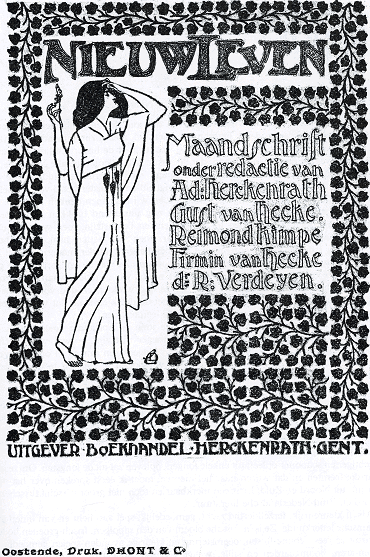 NIEUW LEVEN
Maandschrift
onder redactie van
Ad. Herckenrath
Gust van Hecke.
Reimond Kimpe
Firmin van Hecke
dr R: Verdeyen.
UITGEVER · BOEKHANDEL · HERCKENRATH · GENT.
Oostende, Druk. DHONT & Co